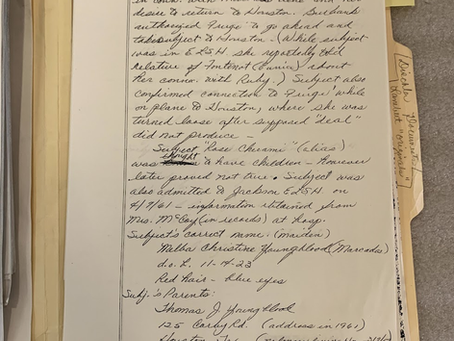 desire to return to Houston. Subject
authorized Fruge to go ahead and
take subject to Houston. (While subject
was in ELSH she reportedly told
relative of Fontenot (Eunice) about
her connec. with Ruby.) Subject also
confirmed connection to Fruge' while
on plane to Houston, where she was
turned loose after supposed "deal"
did not produce -
Subject "Rose Cherami" (alias)
was thought to have children - However
later proved not true. Subject was
also admitted to Jackson ELSH on
4/7/61 - information obtained from
Mrs. McCoy (in records) at Hosp.
Subject's correct name: (maiden)
Malba Christine Youngblood (Marcades)
d.o.b. 11-14-23
Red hair - blue eyes
Subj.'s Parents:
Thomas J. Youngblood
125 Cosby Rd. (address in 1961)
Houston, Tex.
Lincoln Documents